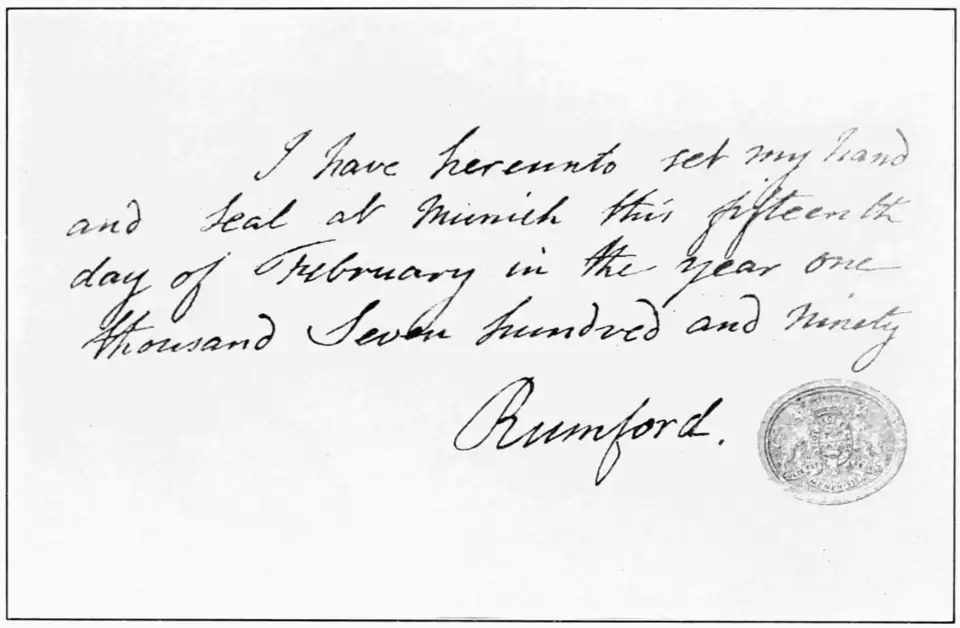 I have hereunto set my hand
and seal at Munich this fifteenth
day of February in the year one
thousand Seven hundred and ninety
Rumford.